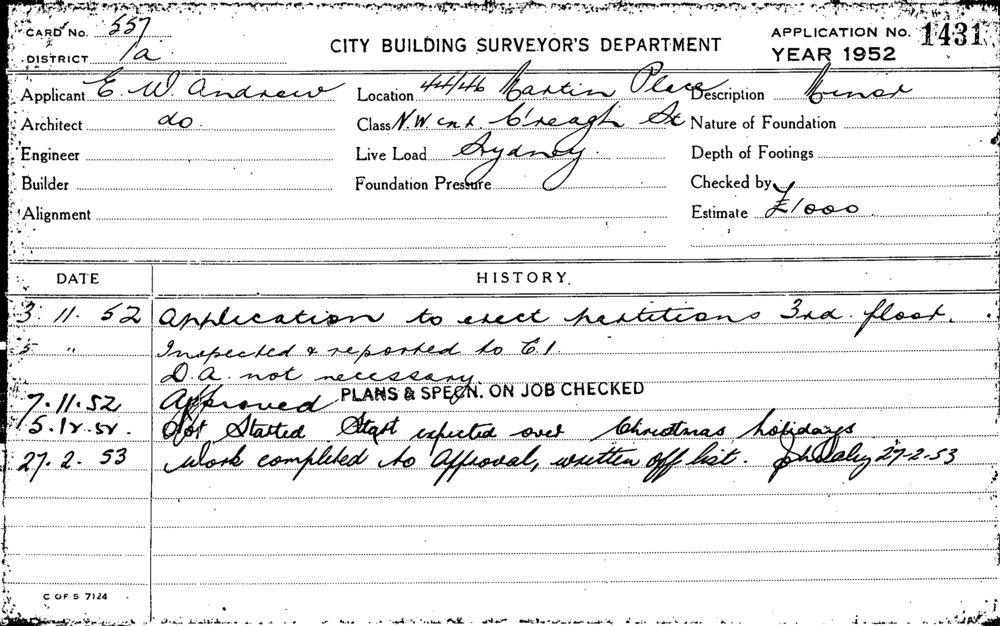 CARD No. 557
DISTRICT 1a
CITY BUILDING SURVEYOR'S DEPARTMENT
APPLICATION No. 1431
YEAR 1952
Applicant E. W. Andrew Location 44/46 Martin Place Description Minor
Architect do. Class N.W cnr C'reagh St Nature of Foundation
Engineer Live Load Sydney. Depth of Footings
Builder Foundation Pressure Checked by
Alignment Estimate £1000
DATE HISTORY.
3. 11. 52 Application to erect partitions 3rd. floor.
5 " Inspected & reported to C.I.
D.A. not necessary.
7.11.52 Approved PLANS & SPECN. ON JOB CHECKED
15.12.52. Not Started Start expected over Christmas holidays
27. 2. 53 Work completed to approval, written off list. 27-2-53
C OF S 7124